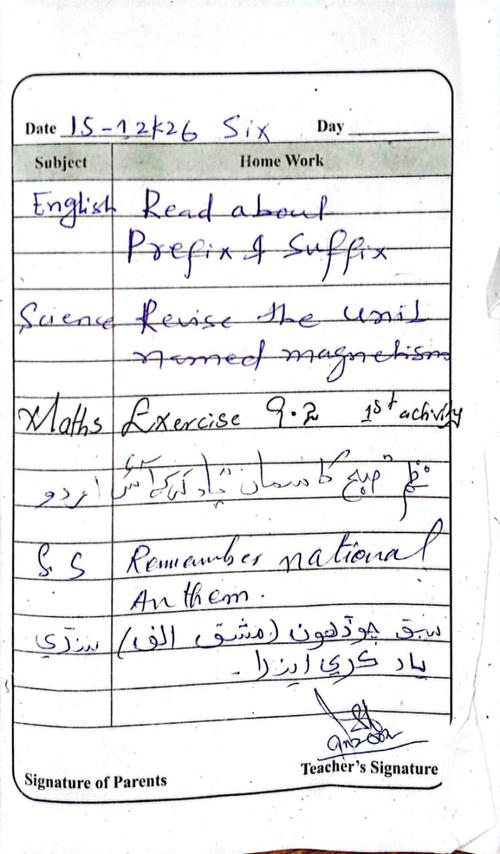 Date 15-12k26 Six Day
Subject Home Work
English Read about
Prefix & Suffix
Science Revise the unit
named magnetism
Maths Exercise 9.2 1st activity
اردو نظم صبح کا سماں یاد کر کے آئیں
S.S Remember national
Anthem.
سنڌي سبق چوڏهون (مشق الف)
ياد ڪري ايندا۔
Signature of Parents Teacher's Signature